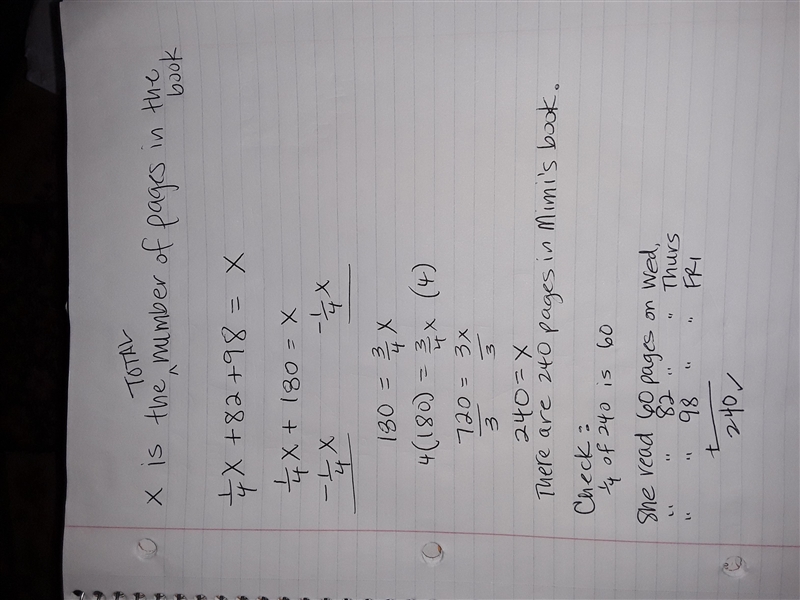 TOTAL
X is the ^ number of pages in the book
1/4 X + 82 + 98 = X
1/4 X + 180 = X
-1/4 X -1/4 X
180 = 3/4 X
4(180) = 3/4 X (4)
720 = 3X
3 3
240 = X
There are 240 pages in Mimi's book.
Check:
1/4 of 240 is 60
She read 60 pages on Wed,
" " 82 " " Thurs
" " 98 " " FRI
+
240 ✓